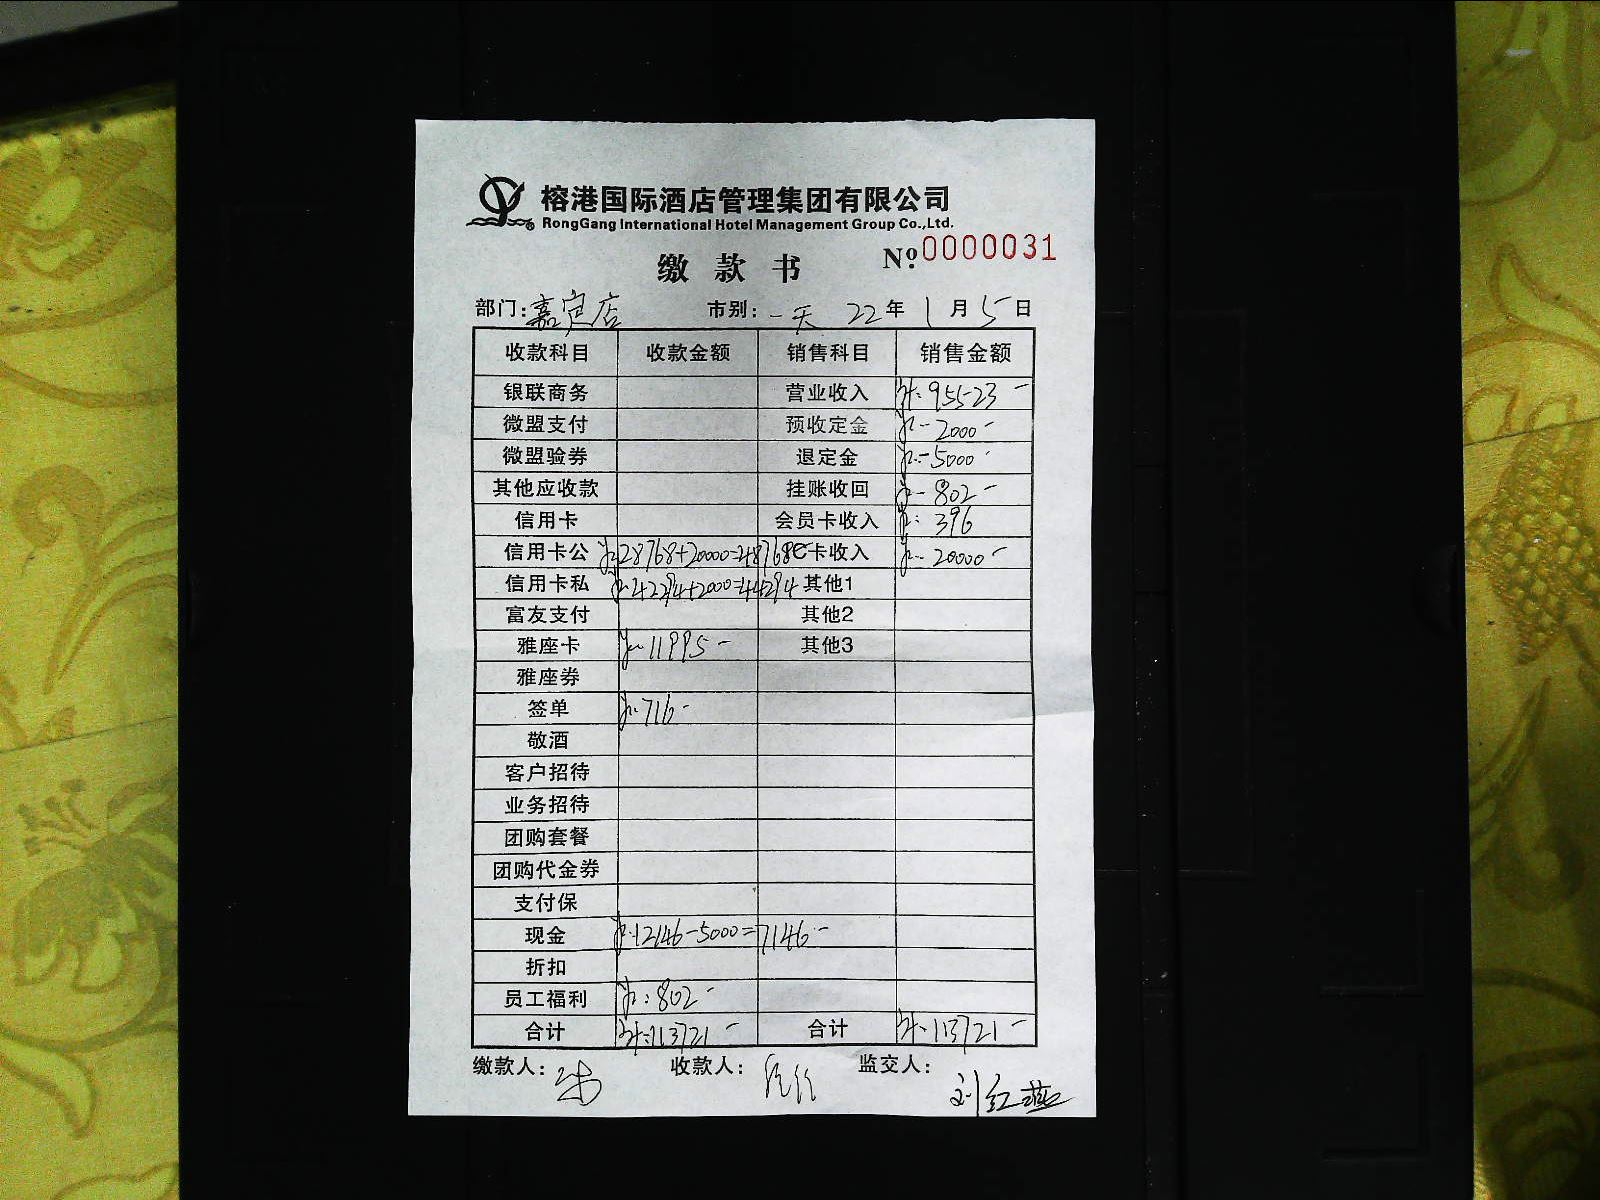 榕港国际酒店管理集团有限公司
RongGang International Hotel Management Group Co.,Ltd.
№ 0000031
缴款书
部门：嘉定店 市别：一天 22年1月5日
收款科目 收款金额 销售科目 销售金额
银联商务 营业收入 ¥：95523-
微盟支付 预收定金 ¥-2000-
微盟验券 退定金 ¥：-5000-
其他应收款 挂账收回 ¥-802-
信用卡 会员卡收入 ¥：396
信用卡公 ¥：28768+20000=48768 C卡收入 ¥-20000-
信用卡私 ¥：42294+2000=44294 其他1
富友支付 其他2
雅座卡 ¥-11995- 其他3
雅座券
签单 ¥：716-
敬酒
客户招待
业务招待
团购套餐
团购代金券
支付保
现金 ¥：12146-5000=7146-
折扣
员工福利 ¥：802-
合计 ¥：113721- 合计 ¥：113721-
缴款人： 收款人： 监交人：刘红燕